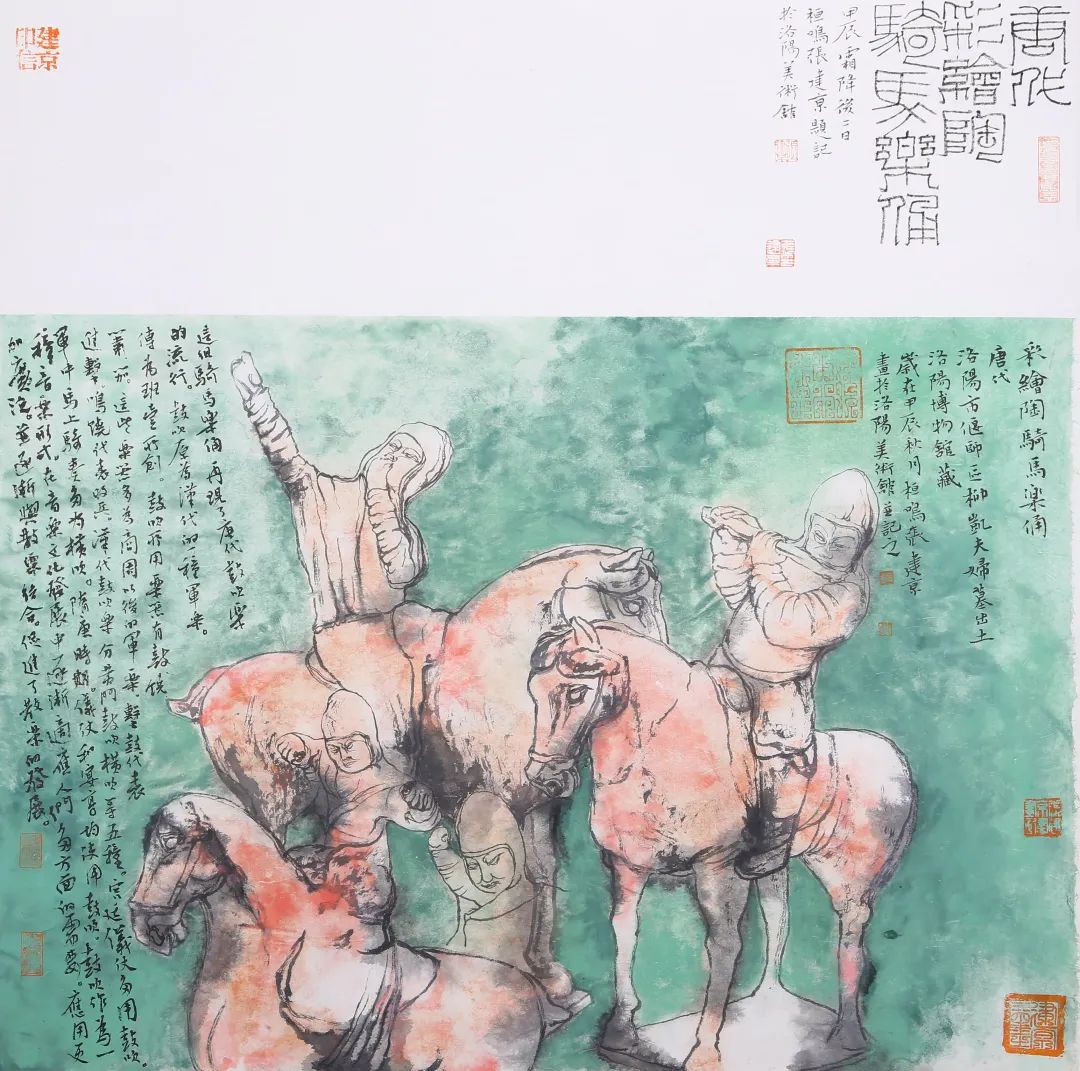 唐代
彩繪陶
騎馬樂俑
甲辰霜降後二日
桓鳴張建京題記
於洛陽美術館
建京
彩繪陶騎馬樂俑
唐代
洛陽市偃師區柳凱夫婦墓出土
洛陽博物館藏
歲在甲辰秋月桓鳴張建京
畫於洛陽美術館並記之
這組騎馬樂俑再現了唐代鼓吹樂
的流行。鼓吹原為漢代的一種軍樂。
傳為班壹所創。鼓吹所用樂器有鼓饒
簫笳。這些樂器多為商周以後的軍樂鼙鼓代表
進擊鳴饒代表收兵。漢代鼓吹樂分黃門鼓吹橫吹等五種。宮廷儀仗多用鼓吹。
軍中馬上騎奏多為橫吹。隋唐時期。儀仗和宴享均使用鼓吹。鼓吹作為一
種音樂形式在音樂文化發展中逐漸適應人們多方面的需要。應用更
加廣泛。並逐漸與散樂結合促進了散樂的發展。